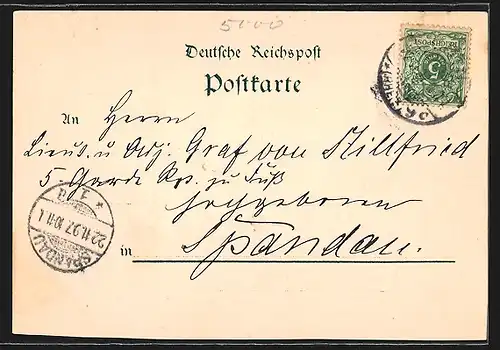 5000
Deutsche Reichspost
Postkarte
An Herrn
Lieut. u. Adj. Graf von Killfried
5. Garde Rgt. zu Fuß
Hochgeboren
in Spandau.
SPANDAU
22.11.97.10-11.V.
* 1 a
REICHSPOST
5